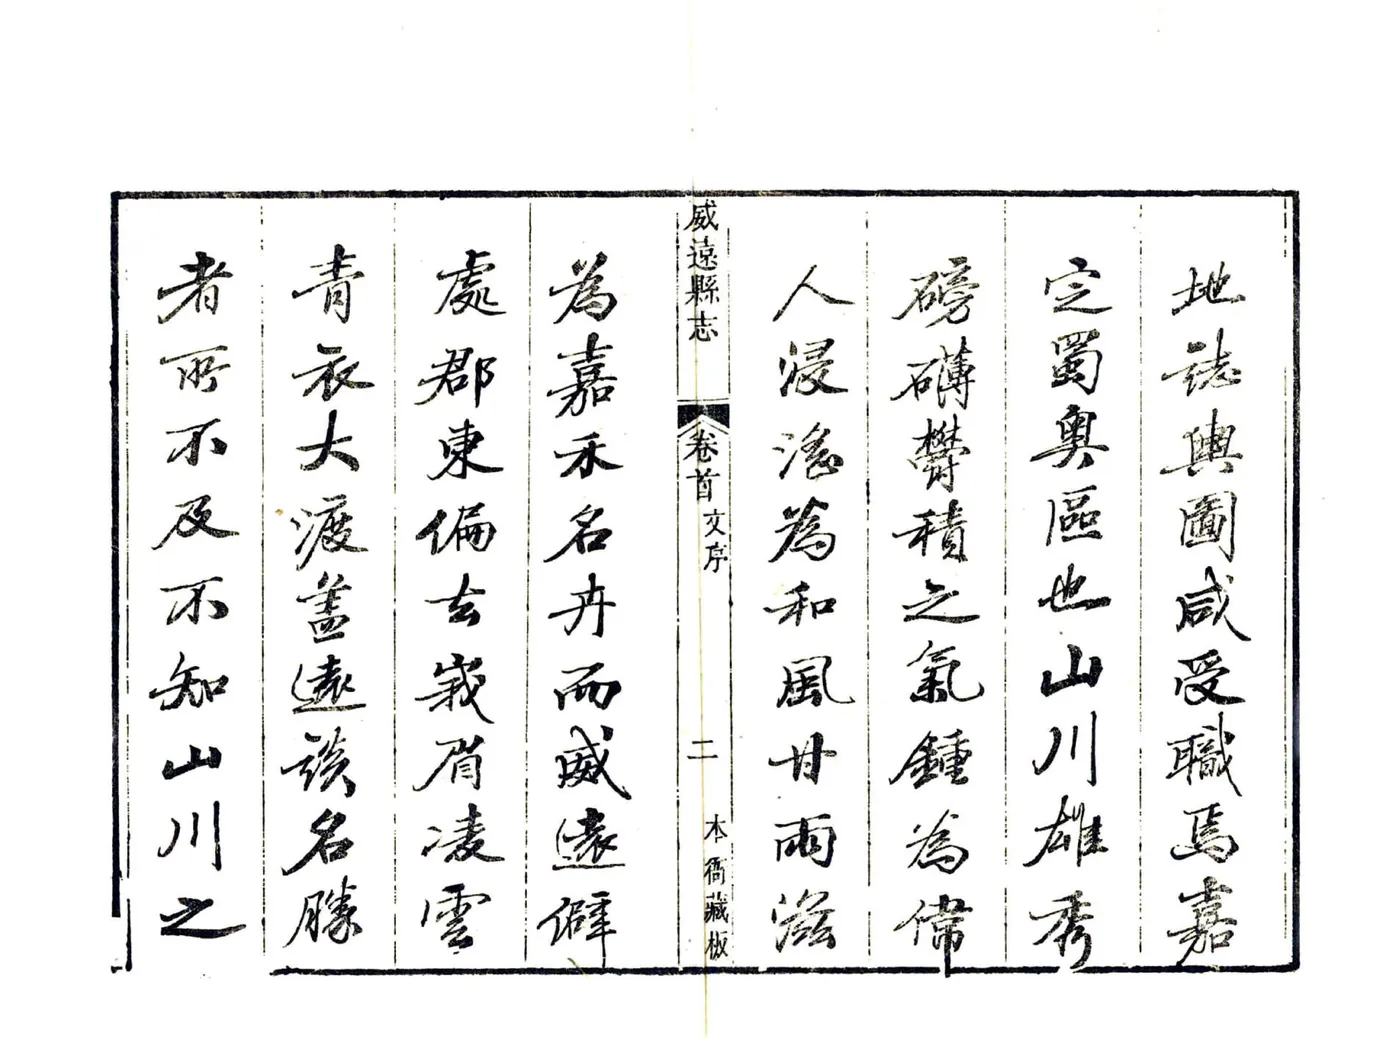 地誌輿圖咸受職焉嘉
定蜀奥區也山川雄秀
磅礴鬱積之氣鍾為偉
人浸淫為和風甘雨滋
威遠縣志 卷首 文序 二 本衙藏板
為嘉禾名卉而威遠僻
處郡東偏去峩眉凌雲
青衣大渡葢遠談名勝
者所不及不知山川之